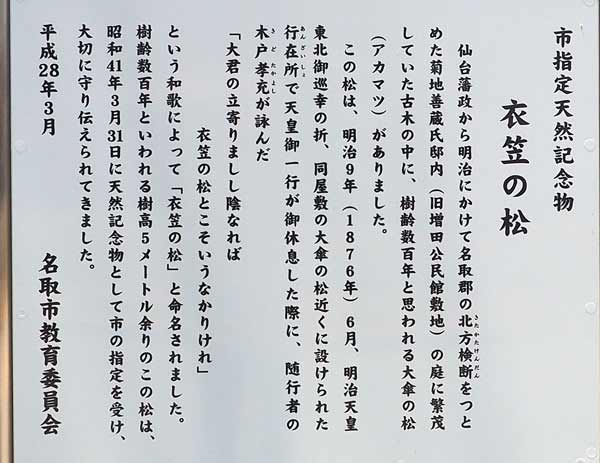 市指定天然記念物
衣笠の松
仙台藩政から明治にかけて名取郡の北方検断をつと
きたかたけんだん
めた菊地善蔵氏邸内（旧増田公民館敷地）の庭に繁茂
していた古木の中に、樹齢数百年と思われる大傘の松
（アカマツ）がありました。
この松は、明治9年（1876年）6月、明治天皇
東北御巡幸の折、同屋敷の大傘の松近くに設けられた
行在所で天皇御一行が御休息した際に、随行者の
あんざいしょ
木戸孝充が詠んだ
きどたかよし
「大君の立寄りましし陰なれば
衣笠の松とこそいうなかりけれ」
という和歌によって「衣笠の松」と命名されました。
樹齢数百年といわれる樹高5メートル余りのこの松は、
昭和41年3月31日に天然記念物として市の指定を受け、
大切に守り伝えられてきました。
平成28年3月
名取市教育委員会